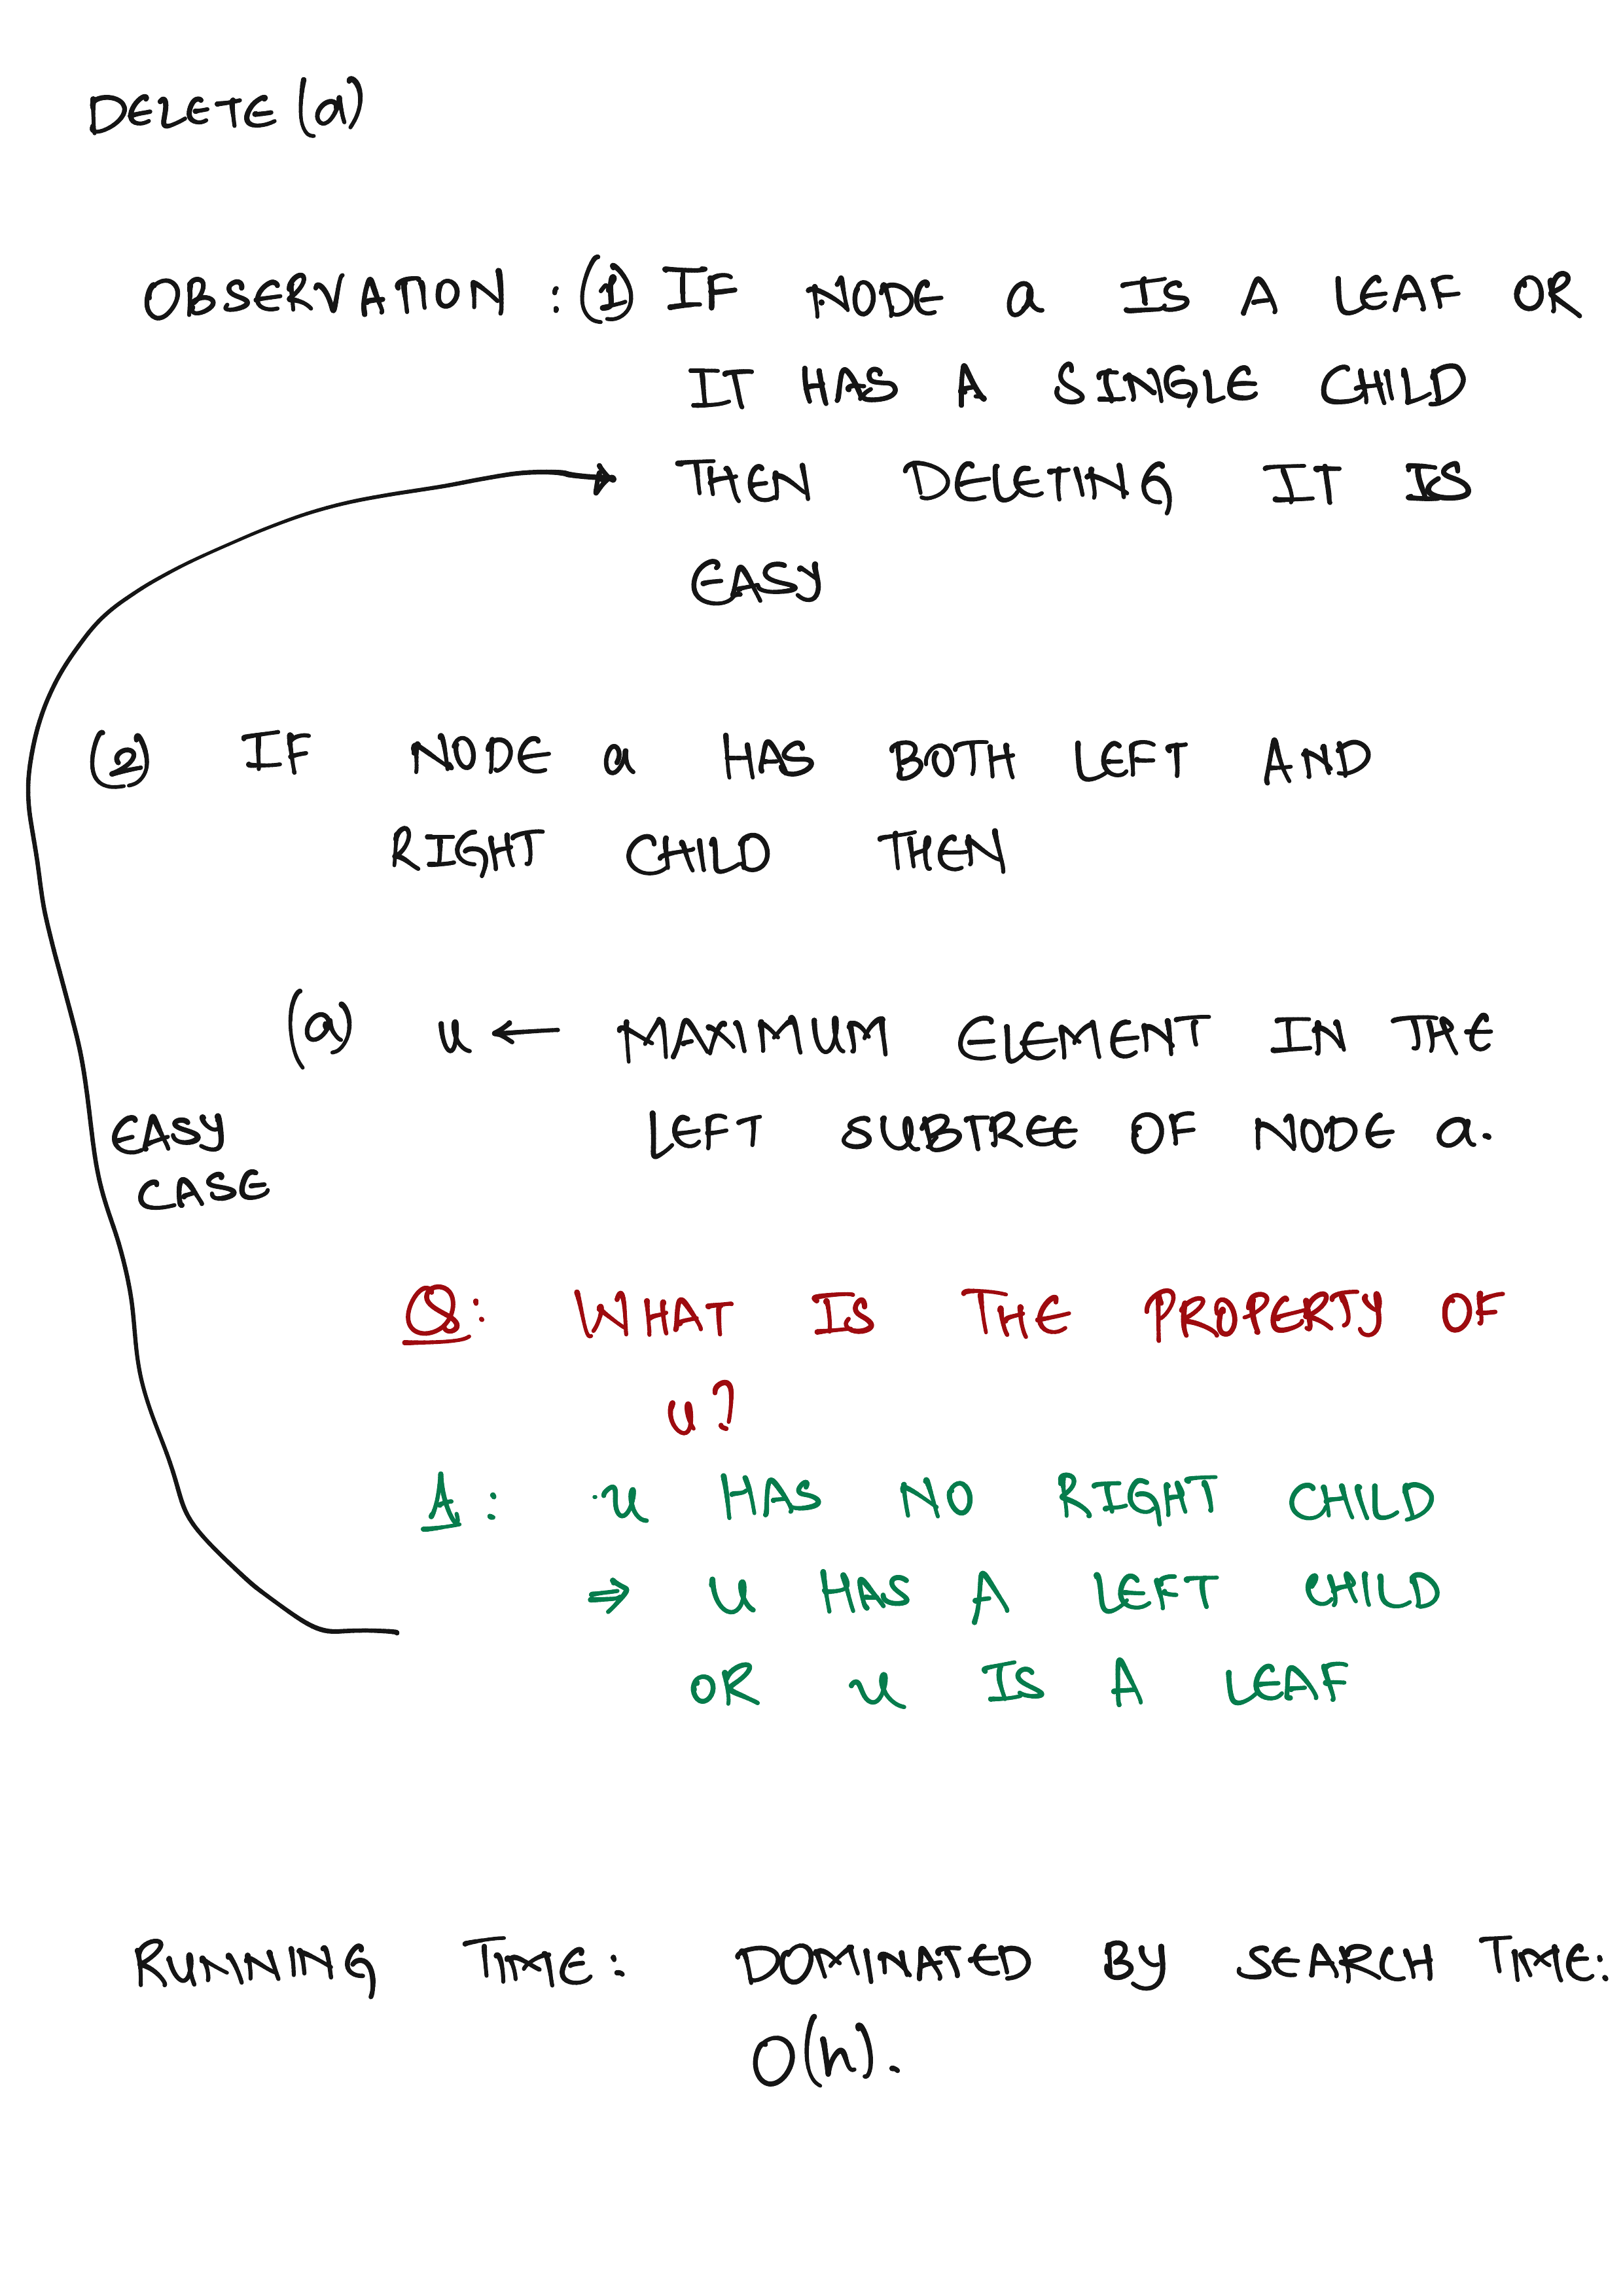 DELETE (a)
OBSERVATION : (1) IF NODE a IS A LEAF OR
IT HAS A SINGLE CHILD
THEN DELETING IT IS
EASY
(2) IF NODE a HAS BOTH LEFT AND
RIGHT CHILD THEN
(a) u ← MAXIMUM ELEMENT IN THE
LEFT SUBTREE OF NODE a.
EASY
CASE
Q: WHAT IS THE PROPERTY OF
u?
A: u HAS NO RIGHT CHILD
⇒ u HAS A LEFT CHILD
OR u IS A LEAF
RUNNING TIME: DOMINATED BY SEARCH TIME:
O(h).